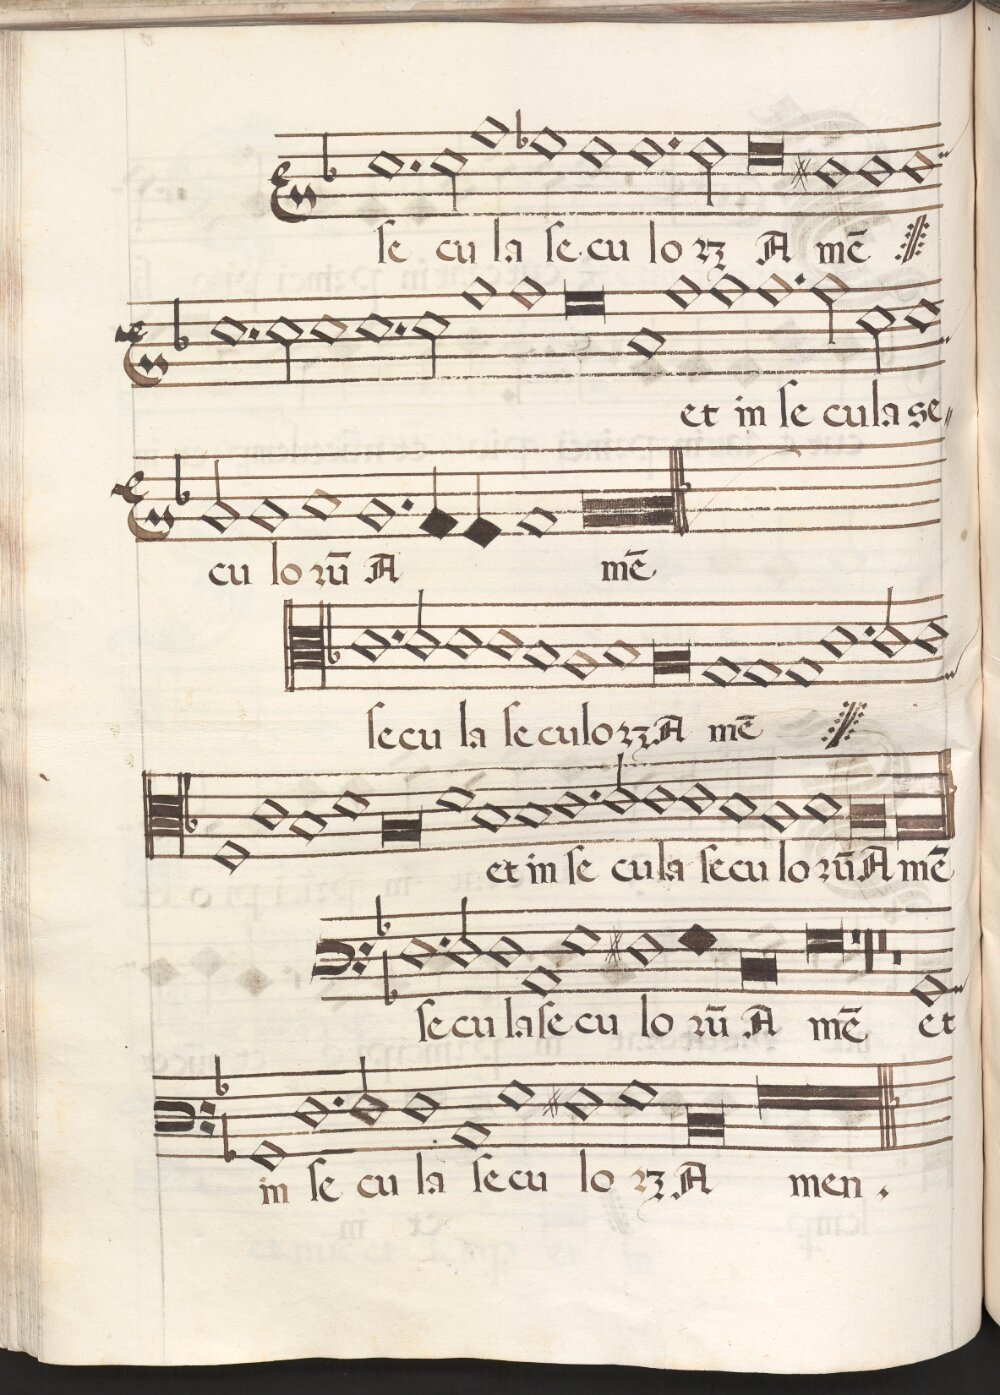 se cu la se cu lo rꝝ A mē
et in se cu la se
cu lo rū A mē
se cu la se cu lo rꝝ A mē
et in se cu la se cu lo rū A mē
se cu la se cu lo rū A mē et
in se cu la se cu lo rꝝ A men .